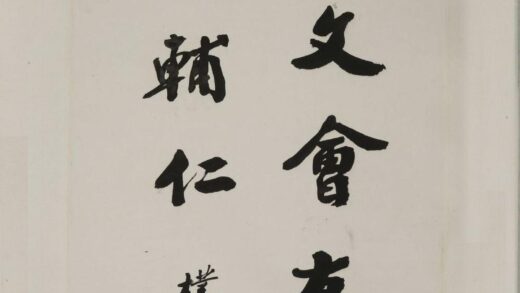 文會友
輔仁樸